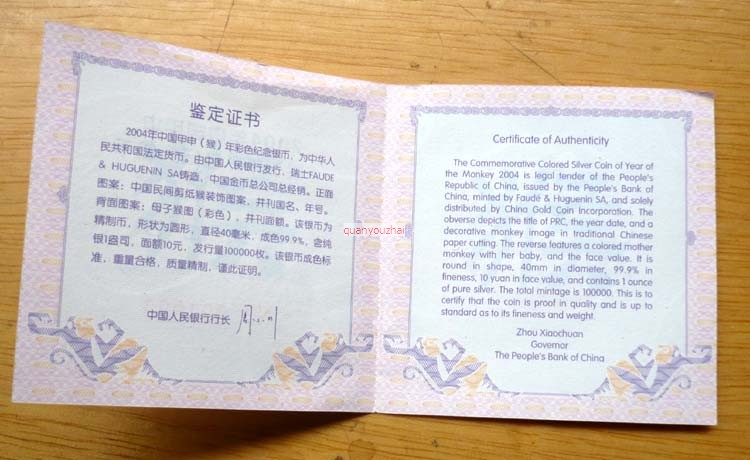 鉴定证书
2004年中国甲申（猴）年彩色纪念银币，为中华人
民共和国法定货币。由中国人民银行发行，瑞士FAUDE
& HUGUENIN SA铸造，中国金币总公司总经销。正面
图案：中国民间剪纸猴装饰图案，并刊国名、年号。
背面图案：母子猴图（彩色），并刊面额。该银币为
精制币，形状为圆形，直径40毫米，成色99.9%，含纯
银1盎司，面额10元，发行量100000枚。该银币成色标
准，重量合格，质量精制，谨此证明。
中国人民银行行长
Certificate of Authenticity
The Commemorative Colored Silver Coin of Year of
the Monkey 2004 is legal tender of the People's
Republic of China, issued by the People's Bank of
China, minted by Faudé & Huguenin SA, and solely
distributed by China Gold Coin Incorporation. The
obverse depicts the title of PRC, the year date, and a
decorative monkey image in traditional Chinese
paper cutting. The reverse features a colored mother
monkey with her baby, and the face value. It is
round in shape, 40mm in diameter, 99.9% in
fineness, 10 yuan in face value, and contains 1 ounce
of pure silver. The total mintage is 100000. This is to
certify that the coin is proof in quality and is up to
standard as to its fineness and weight.
Zhou Xiaochuan
Governor
The People's Bank of China
quanyouzhai